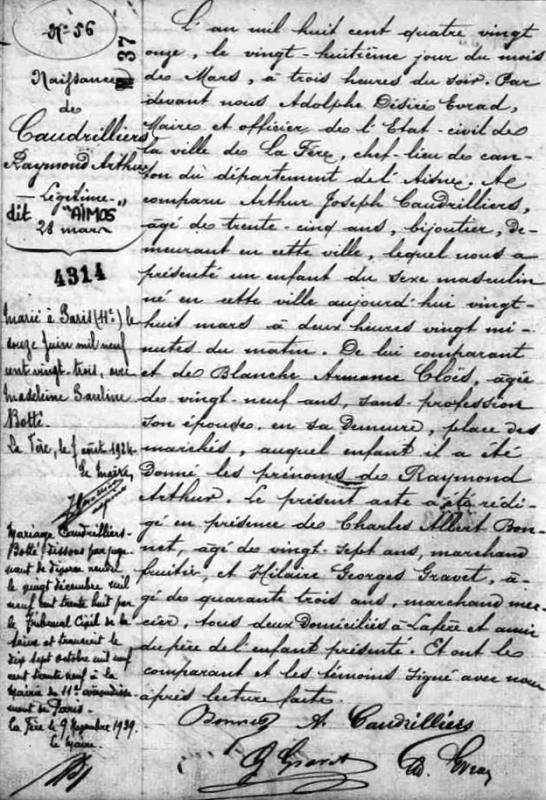 N° 56
Naissance
de
Caudrilliers
Raymond Arthur
Légitime
dit "AIMOS
28 mars
N 37
4314
marié à Paris (11e) le
onze Juin mil neuf
cent vingt-trois, avec
Madeleine Pauline
Botté.
La Fère, le août 1924.
Le Maire,
Mariage Caudrilliers-
Botté dissous par juge
ment de divorce rendu
le vingt décembre mil
neuf cent trente huit par
le Tribunal Civil de la
Seine et transcrit le
dix sept octobre mil neuf
cent trente neuf à la
Mairie du 11e arrondisse
ment de Paris.
La Fère le 9 1939.
le Maire.
L'an mil huit cent quatre vingt
onze, le vingt-huitième jour du mois
de Mars, à trois heures du soir. Par
devant nous Adolphe Désiré Evrad,
Maire et officier de l'Etat-civil de
la ville de La Fère, chef-lieu de can-
ton du département de l'Aisne. A
comparu Arthur Joseph Caudrilliers,
âgé de trente-cinq ans, bijoutier, de-
meurant en cette ville, lequel nous a
présenté un enfant du sexe masculin
né en cette ville aujourd'hui vingt-
huit mars à deux heures vingt mi-
nutes du matin. De lui comparant
et de Blanche Armance Cloës, âgée
de vingt-neuf ans, sans profession
son épouse, en sa demeure, place des
marchés, auquel enfant il a été
donné les prénoms de Raymond
Arthur. Le présent acte a été rédi-
gé en présence de Charles Albert Bon-
net, âgé de vingt-sept ans, marchand
fruitier, et Hilaire Georges Gravet, â-
gé de quarante trois ans, marchand mer-
cier, tous deux domiciliés à Lafère et amis
du père de l'enfant présenté. Et ont les
comparant et les témoins signé avec nous
après lecture faite.
Bonnet A. Caudrilliers
G Gravet AD. Evrad